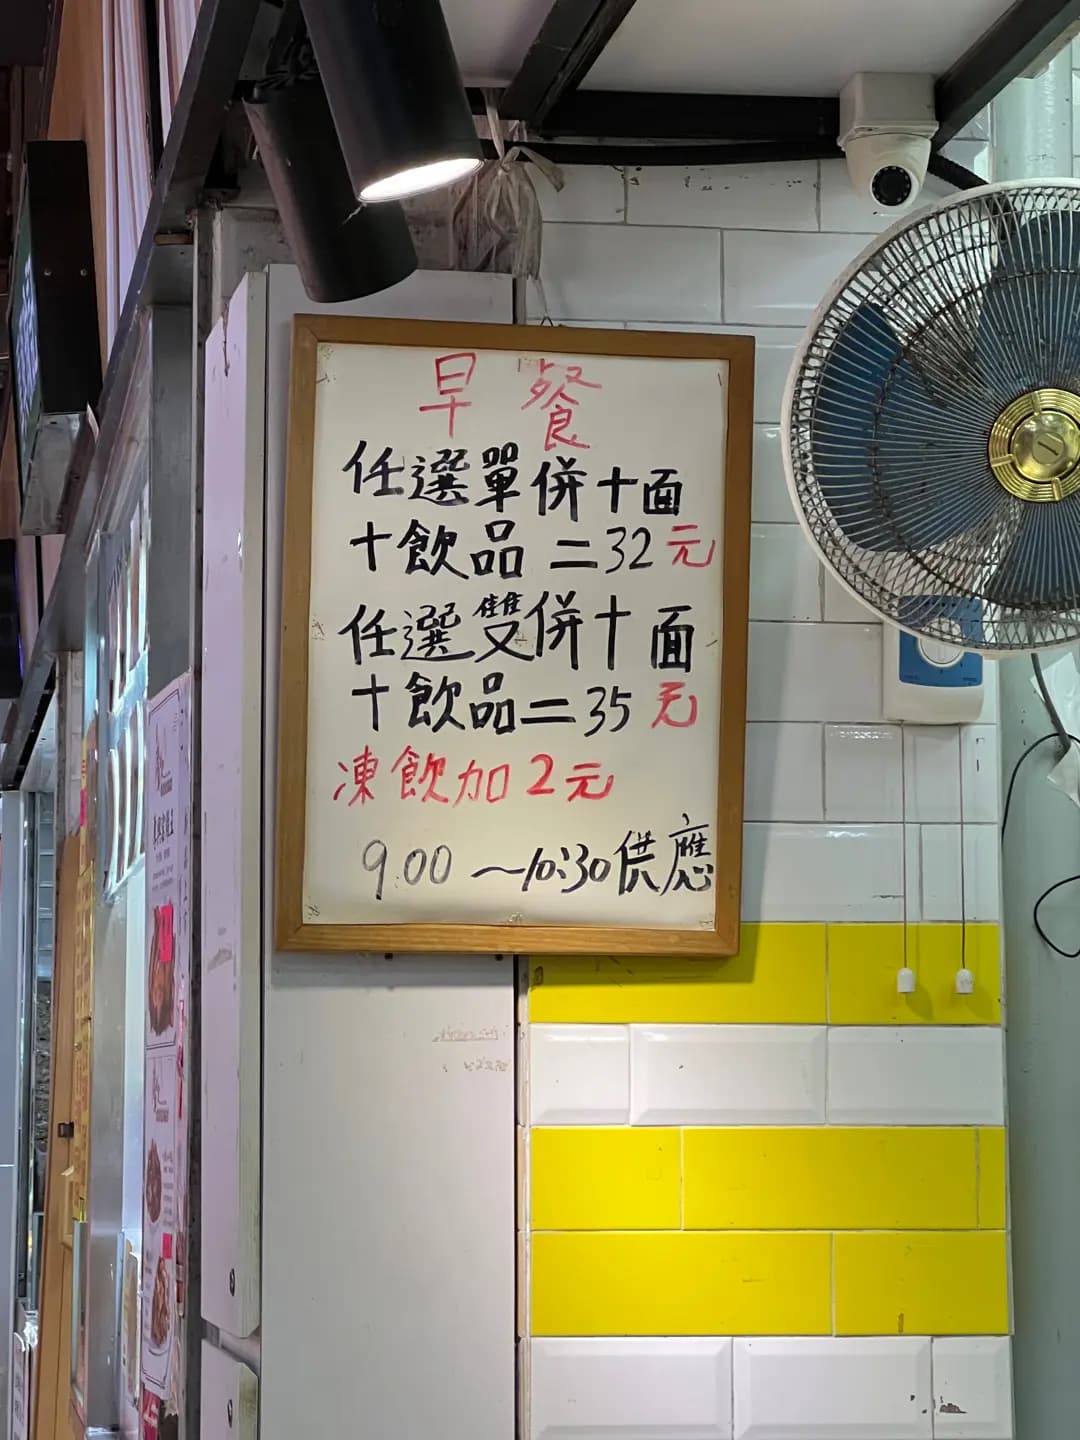 早餐
任選單併十面
十飲品二32元
任選雙併十面
十飲品二35元
凍飲加2元
9:00～10:30供應